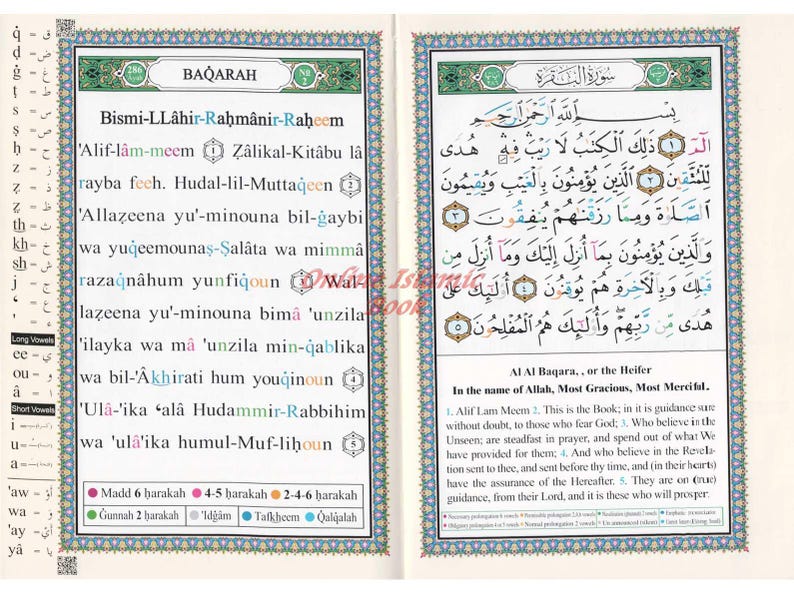 q̇ = ق
ḍ = ض
ġ = غ
ṭ = ط
s = س
ṣ = ص
ḥ = ح
z = ز
ẓ = ظ
th = ث
kh = خ
sh = ش
j = ج
‘ = ع
' = ء
Long Vowels
ee = ي
ou = و
â = ا
Short Vowels
i =
u =
a =
'aw = أَوْ
wa = وَ
'ay = أَيْ
yâ = يَا
286
Ayah
BAQ̇ARAH
No
2
Bismi-LLâhir-Raḥmânir-Raḥeem
'Alif-lâm-meem 1 Ẓâlikal-Kitâbu lâ
rayba feeh. Hudal-lil-Muttaq̇een 2
'Allaẓeena yu'-minouna bil-ġaybi
wa yuq̇eemounaṣ-Ṣalâta wa mimmâ
razaq̇nâhum yunfiq̇oun 3 Wal-
laẓeena yu'-minouna bimâ 'unzila
'ilayka wa mâ 'unzila min-q̇ablika
wa bil-'Âkhirati hum youq̇inoun 4
'Ulâ-'ika ‘alâ Hudammir-Rabbihim
wa 'ulâ'ika humul-Muf-liḥoun 5
Madd 6 ḥarakah 4-5 ḥarakah 2-4-6 ḥarakah
Ġunnah 2 ḥarakah 'Idġâm Tafkheem Q̇alq̇alah
Online Islamic
Book
سُورَةُ الْبَقَرَة
بِسْمِ اللَّهِ الرَّحْمَٰنِ الرَّحِيمِ
الٓمٓ ١ ذَٰلِكَ الْكِتَٰبُ لَا رَيْبَ فِيهِ هُدًى
لِّلْمُتَّقِينَ ٢ الَّذِينَ يُؤْمِنُونَ بِالْغَيْبِ وَيُقِيمُونَ
الصَّلَوٰةَ وَمِمَّا رَزَقْنَٰهُمْ يُنفِقُونَ ٣
وَالَّذِينَ يُؤْمِنُونَ بِمَآ أُنزِلَ إِلَيْكَ وَمَآ أُنزِلَ مِن
قَبْلِكَ وَبِالْآخِرَةِ هُمْ يُوقِنُونَ ٤ أُولَٰٓئِكَ عَلَىٰ
هُدًى مِّن رَّبِّهِمْ وَأُولَٰٓئِكَ هُمُ الْمُفْلِحُونَ ٥
Al Al Baqara, , or the Heifer
In the name of Allah, Most Gracious, Most Merciful.
1. Alif Lam Meem 2. This is the Book; in it is guidance sure
without doubt, to those who fear God; 3. Who believe in the
Unseen; are steadfast in prayer, and spend out of what We
have provided for them; 4. And who believe in the Revela-
tion sent to thee, and sent before thy time, and (in their hearts)
have the assurance of the Hereafter. 5. They are on (true)
guidance, from their Lord, and it is these who will prosper.
Necessary prolongation 6 vowels Permissible prolongation 2,4,6 vowels Nasalization (ghunnah) 2 vowels Emphatic pronunciation
Obligatory prolongation 4 or 5 vowels Normal prolongation 2 vowels Un announced (silent)